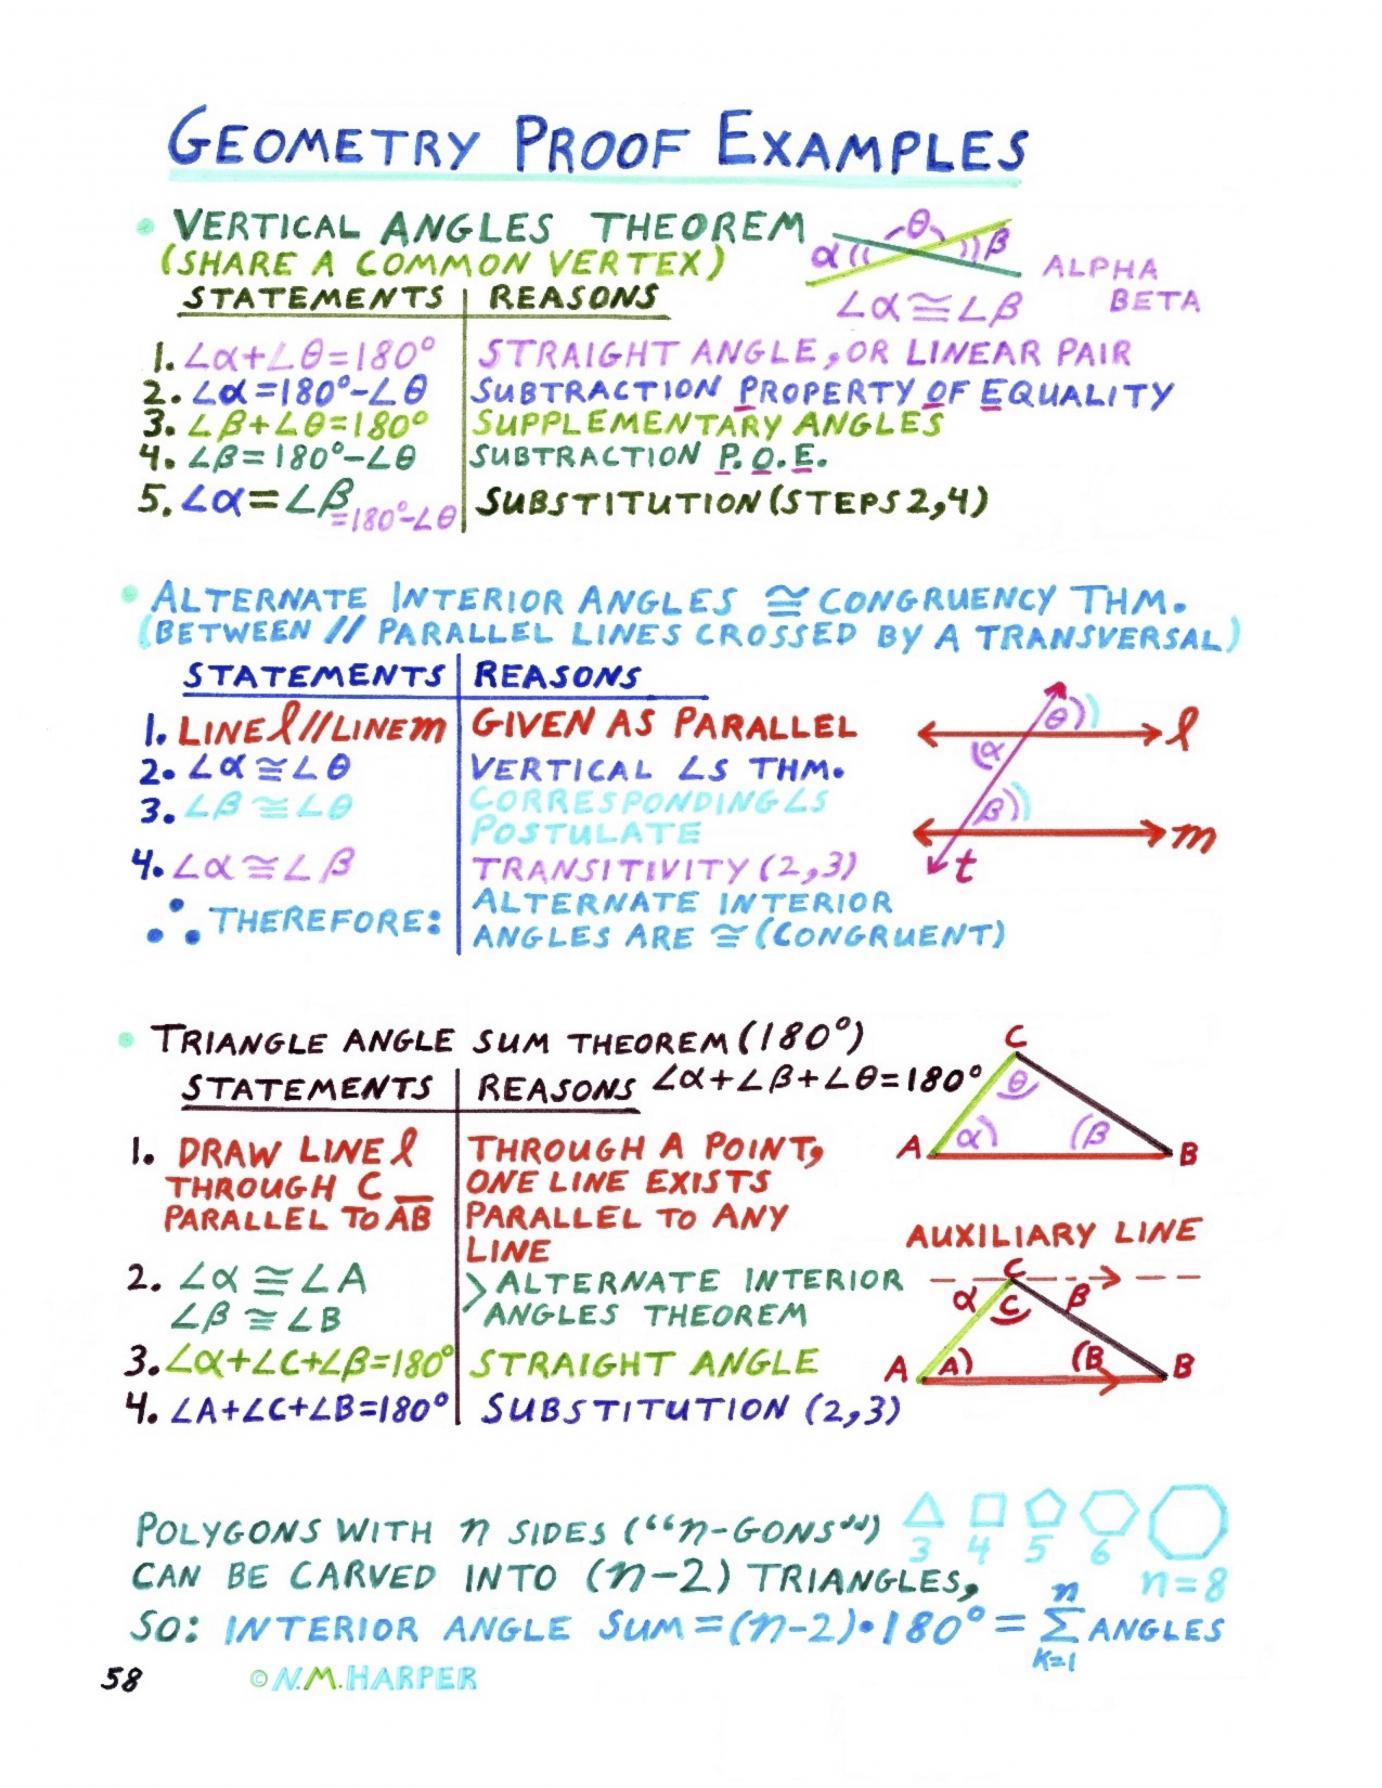 GEOMETRY PROOF EXAMPLES
• VERTICAL ANGLES THEOREM
(SHARE A COMMON VERTEX)
α θ β
ALPHA
BETA
∠α≅∠β
STATEMENTS | REASONS
1. ∠α+∠θ=180° STRAIGHT ANGLE, OR LINEAR PAIR
2. ∠α=180°-∠θ SUBTRACTION PROPERTY OF EQUALITY
3. ∠β+∠θ=180° SUPPLEMENTARY ANGLES
4. ∠β=180°-∠θ SUBTRACTION P.O.E.
5. ∠α=∠β =180°-∠θ SUBSTITUTION (STEPS 2,4)
• ALTERNATE INTERIOR ANGLES ≅ CONGRUENCY THM.
(BETWEEN // PARALLEL LINES CROSSED BY A TRANSVERSAL)
STATEMENTS | REASONS
1. LINE ℓ//LINE m GIVEN AS PARALLEL
2. ∠α≅∠θ VERTICAL ∠S THM.
3. ∠β≅∠θ CORRESPONDING ∠S
POSTULATE
4. ∠α≅∠β TRANSITIVITY (2,3)
∴ THEREFORE: ALTERNATE INTERIOR
ANGLES ARE ≅ (CONGRUENT)
θ ℓ
α
β
m
t
• TRIANGLE ANGLE SUM THEOREM (180°)
STATEMENTS | REASONS ∠α+∠β+∠θ=180°
C
θ
A α β B
1. DRAW LINE ℓ THROUGH A POINT,
THROUGH C ONE LINE EXISTS
PARALLEL TO A̅B̅ PARALLEL TO ANY
LINE
2. ∠α≅∠A >ALTERNATE INTERIOR
∠β≅∠B ANGLES THEOREM
3. ∠α+∠C+∠β=180° STRAIGHT ANGLE
4. ∠A+∠C+∠B=180° SUBSTITUTION (2,3)
AUXILIARY LINE
C
α C β
A A B B
POLYGONS WITH n SIDES ("n-GONS")
3 4 5 6 n=8
CAN BE CARVED INTO (n-2) TRIANGLES,
SO: INTERIOR ANGLE SUM=(n-2)•180°= n Σ k=1 ANGLES
58 © N.M. HARPER